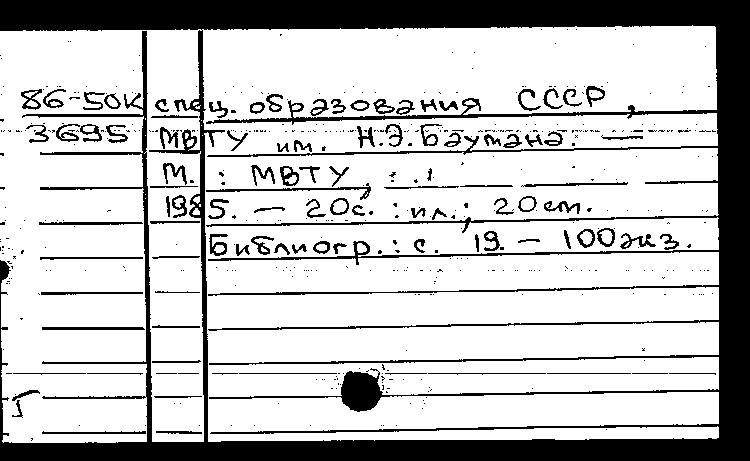 86-50К спец. образования СССР,
3695 МВТУ им. Н.Э.Баумана. —
М. : МВТУ, : .
1985. — 20с. : ил.; 20см.
Библиогр.: с. 19. — 100экз.